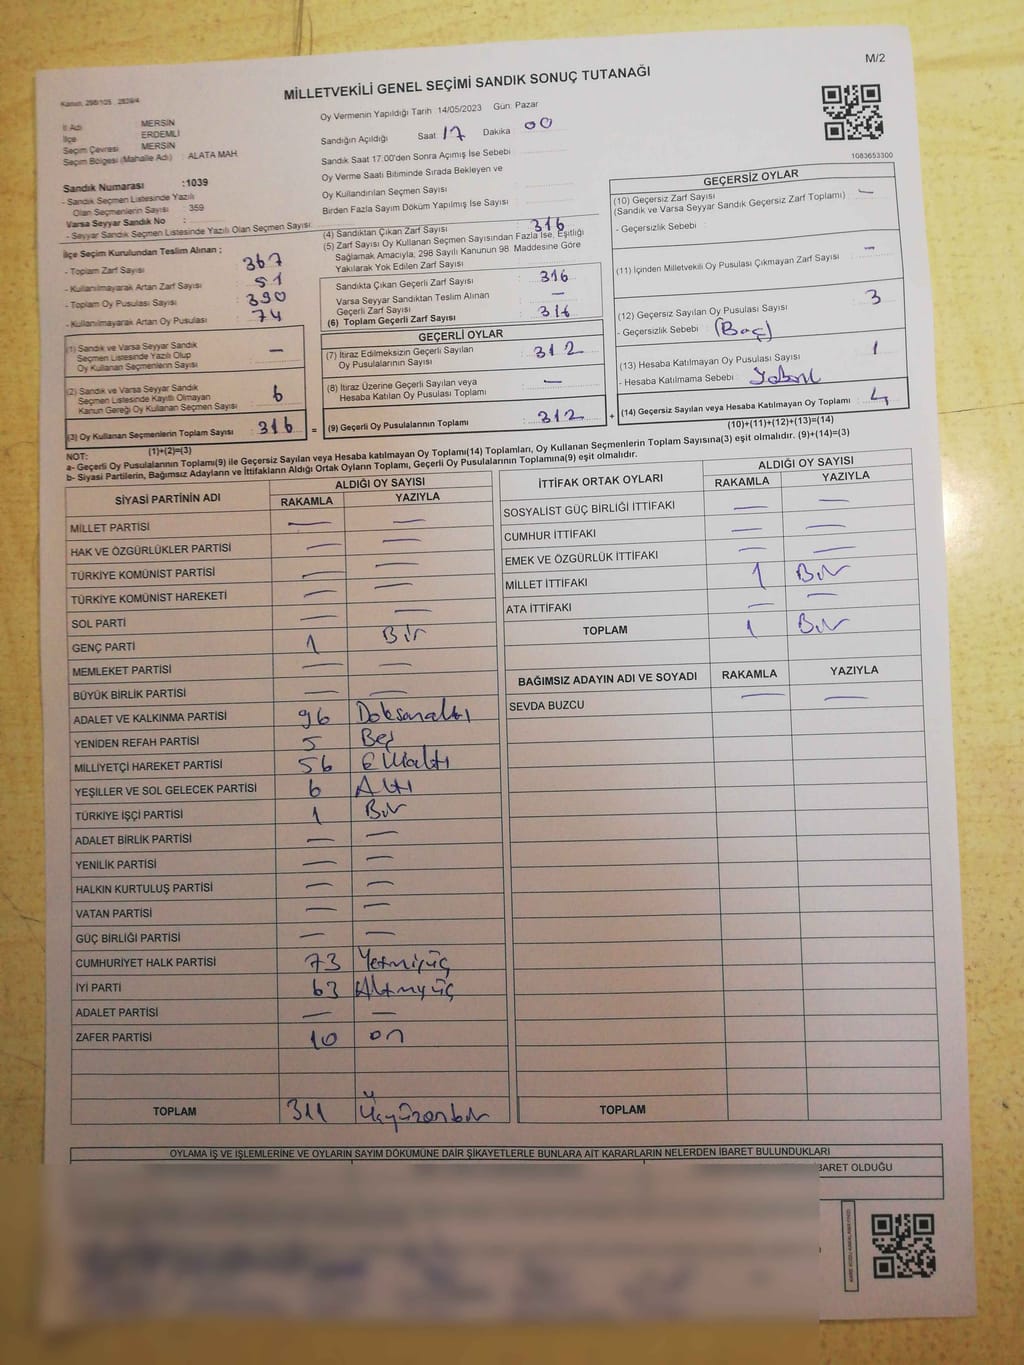 M/2
MİLLETVEKİLİ GENEL SEÇİMİ SANDIK SONUÇ TUTANAĞI
Kanun, 298/105
İl Adı MERSİN
İlçe ERDEMLİ
Seçim Çevresi MERSİN
Seçim Bölgesi (Mahalle Adı) : ALATA MAH.
Sandık Numarası :1039
- Sandık Seçmen Listesinde Yazılı
Olan Seçmenlerin Sayısı : 359
Varsa Seyyar Sandık No :
- Seyyar Sandık Seçmen Listesinde Yazılı Olan Seçmen Sayısı:
Oy Vermenin Yapıldığı Tarih :14/05/2023 Gün: Pazar
Sandığın Açıldığı Saat 17 Dakika : 00
Sandık Saat 17.00'den Sonra Açımış İse Sebebi :
Oy Verme Saati Bitiminde Sırada Bekleyen ve
Oy Kullandırılan Seçmen Sayısı :
Birden Fazla Sayım Döküm Yapılmış İse Sayısı :
1083653300
İlçe Seçim Kurulundan Teslim Alınan ;
- Toplam Zarf Sayısı : 367
- Kullanılmayarak Artan Zarf Sayısı : 51
- Toplam Oy Pusulası Sayısı : 390
- Kullanılmayarak Artan Oy Pusulası : 74
(1) Sandık ve Varsa Seyyar Sandık
Seçmen Listesinde Yazılı Olup
Oy Kullanan Seçmenlerin Sayısı : —
(2) Sandık ve Varsa Seyyar Sandık
Seçmen Listesinde Kayıtlı Olmayan
Kanun Gereği Oy Kullanan Seçmen Sayısı : 6
(3) Oy Kullanan Seçmenlerin Toplam Sayısı : 316
(1)+(2)=(3)
(4) Sandıktan Çıkan Zarf Sayısı : 316
(5) Zarf Sayısı Oy Kullanan Seçmen Sayısından Fazla İse, Eşitliği
Sağlamak Amacıyla, 298 Sayılı Kanunun 98. Maddesine Göre
Yakılarak Yok Edilen Zarf Sayısı :
Sandıkta Çıkan Geçerli Zarf Sayısı : 316
Varsa Seyyar Sandıktan Teslim Alınan
Geçerli Zarf Sayısı : —
(6) Toplam Geçerli Zarf Sayısı : 316
GEÇERLİ OYLAR
(7) İtiraz Edilmeksizin Geçerli Sayılan
Oy Pusulalarının Sayısı : 312
(8) İtiraz Üzerine Geçerli Sayılan veya
Hesaba Katılan Oy Pusulası Toplamı : —
= (9) Geçerli Oy Pusulalarının Toplamı : 312 +
GEÇERSİZ OYLAR
(10) Geçersiz Zarf Sayısı : —
(Sandık ve Varsa Seyyar Sandık Geçersiz Zarf Toplamı)
- Geçersizlik Sebebi :
(11) İçinden Milletvekili Oy Pusulası Çıkmayan Zarf Sayısı : —
(12) Geçersiz Sayılan Oy Pusulası Sayısı : 3
- Geçersizlik Sebebi : (Boş)
(13) Hesaba Katılmayan Oy Pusulası Sayısı : 1
- Hesaba Katılmama Sebebi :
(14) Geçersiz Sayılan veya Hesaba Katılmayan Oy Toplamı : 4
(10)+(11)+(12)+(13)=(14)
NOT:
a- Geçerli Oy Pusulalarının Toplamı(9) ile Geçersiz Sayılan veya Hesaba katılmayan Oy Toplamı(14) Toplamları, Oy Kullanan Seçmenlerin Toplam Sayısına(3) eşit olmalıdır. (9)+(14)=(3)
b- Siyasi Partilerin, Bağımsız Adayların ve İttifakların Aldığı Ortak Oyların Toplamı, Geçerli Oy Pusulalarının Toplamına(9) eşit olmalıdır.
SİYASİ PARTİNİN ADI ALDIĞI OY SAYISI
RAKAMLA YAZIYLA
MİLLET PARTİSİ — —
HAK VE ÖZGÜRLÜKLER PARTİSİ — —
TÜRKİYE KOMÜNİST PARTİSİ — —
TÜRKİYE KOMÜNİST HAREKETİ — —
SOL PARTİ — —
GENÇ PARTİ 1 Bir
MEMLEKET PARTİSİ — —
BÜYÜK BİRLİK PARTİSİ — —
ADALET VE KALKINMA PARTİSİ 96 Doksanaltı
YENİDEN REFAH PARTİSİ 5 Beş
MİLLİYETÇİ HAREKET PARTİSİ 56 Ellialtı
YEŞİLLER VE SOL GELECEK PARTİSİ 6 Altı
TÜRKİYE İŞÇİ PARTİSİ 1 Bir
ADALET BİRLİK PARTİSİ — —
YENİLİK PARTİSİ — —
HALKIN KURTULUŞ PARTİSİ — —
VATAN PARTİSİ — —
GÜÇ BİRLİĞİ PARTİSİ — —
CUMHURİYET HALK PARTİSİ 73 Yetmişüç
İYİ PARTİ 63 Altmışüç
ADALET PARTİSİ — —
ZAFER PARTİSİ 10 on
TOPLAM 311 Üçyüzonbir
İTTİFAK ORTAK OYLARI ALDIĞI OY SAYISI
RAKAMLA YAZIYLA
SOSYALİST GÜÇ BİRLİĞİ İTTİFAKI — —
CUMHUR İTTİFAKI — —
EMEK VE ÖZGÜRLÜK İTTİFAKI — —
MİLLET İTTİFAKI 1 Bir
ATA İTTİFAKI — —
TOPLAM 1 Bir
BAĞIMSIZ ADAYIN ADI VE SOYADI RAKAMLA YAZIYLA
SEVDA BUZCU — —
TOPLAM
OYLAMA İŞ VE İŞLEMLERİNE VE OYLARIN SAYIM DÖKÜMÜNE DAİR ŞİKAYETLERLE BUNLARA AİT KARARLARIN NELERDEN İBARET BULUNDUKLARI
İBARET OLDUĞU